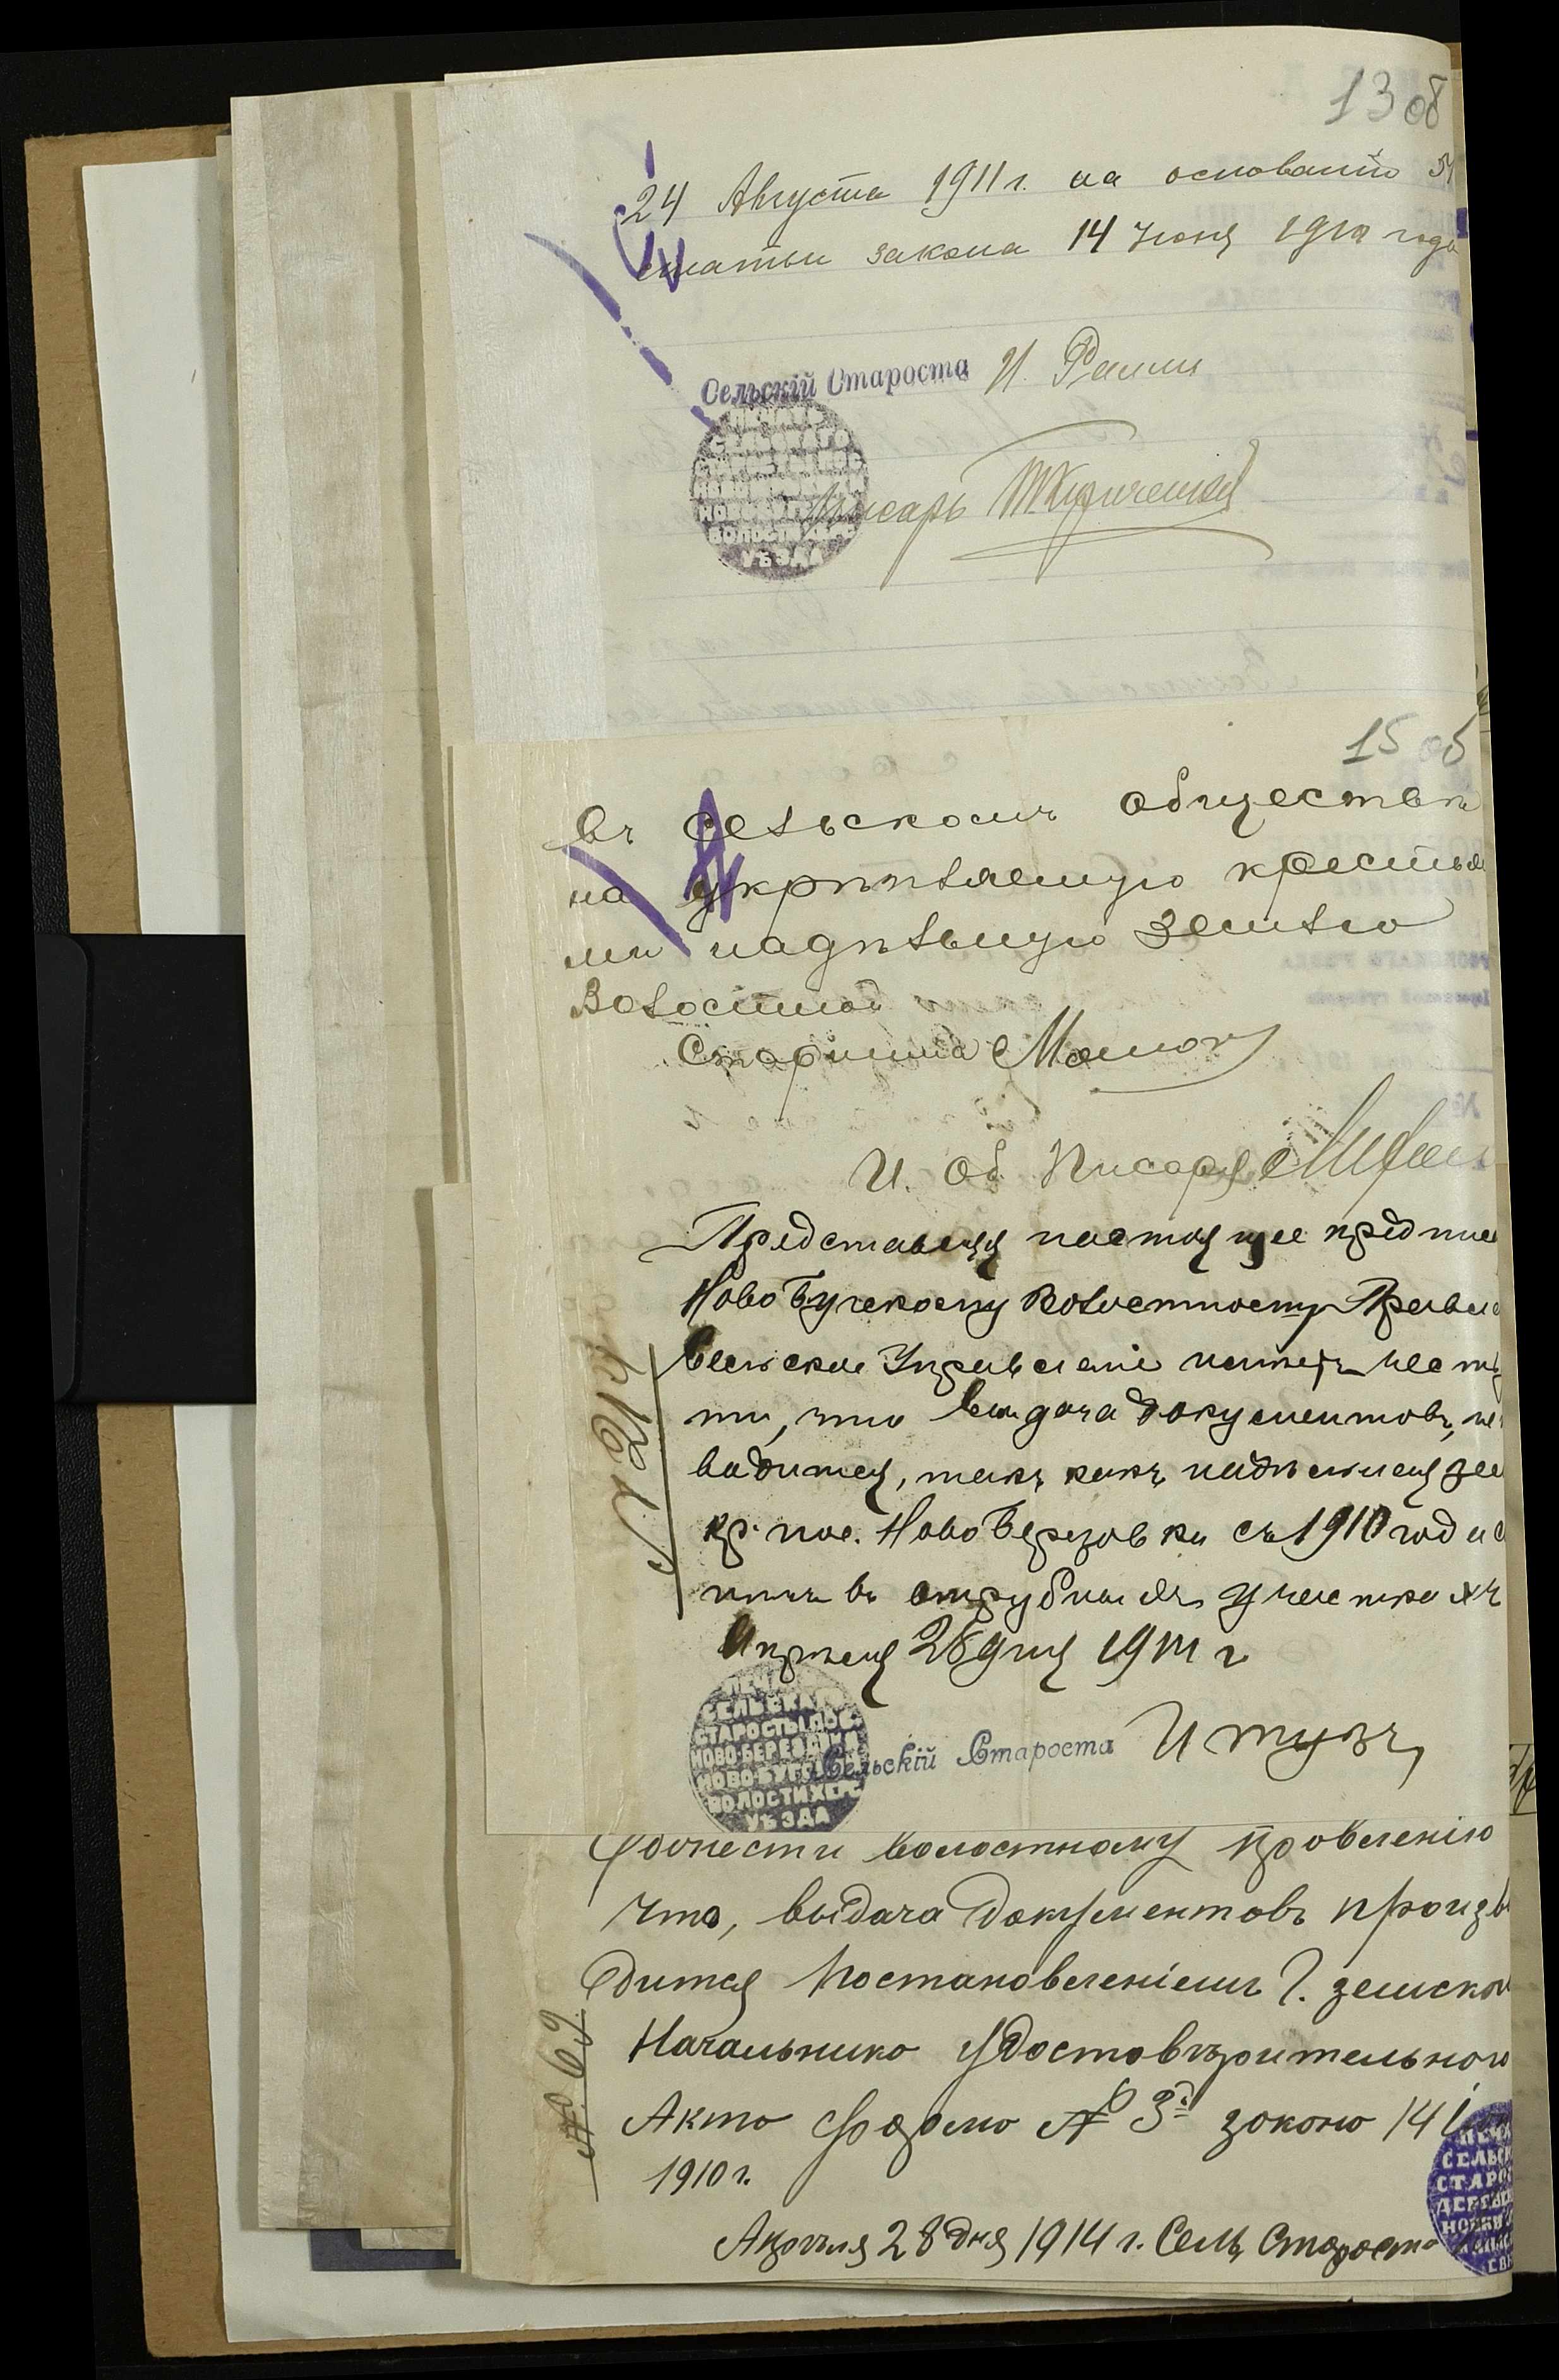 13 об
24 Августа 1911 г. на основаніи
статьи закона 14 Іюня 1910 года
Сельскій Староста И.
ПЕЧАТЬ
СЕЛЬСКАГО
СТАРОСТЫ ПОС
НОВО-БУГС
ВОЛОСТИ ХЕРС
УѢЗДА
Писарь
15 об
въ сельскомъ обществѣ
на укрѣпляемую крестья
ми надѣльную землю
Волостной
Старшина
И. об. Писаря
Представляя настоящее предпис
Ново Бугскому Волостному Правле
Сельское Управленіе имѣетъ чест
ти, что выдача документовъ, не
водится, такъ какъ надѣльная зем
кр. пос. Ново Березовки съ 1910 года с
въ отрубныхъ участкахъ
Апрѣля 28 дня 1914 г
№ 127
ПЕЧАТЬ
СЕЛЬСКАГО
СТАРОСТЫ ПОС.
НОВО-БЕРЕЗОВКИ
НОВО-БУГС
ВОЛОСТИ ХЕРС
УѢЗДА
Сельскій Староста
донести волостному провленію
что, выдача документовъ произв
дится Постановленіемъ Г. земског
Начальнико Удостовѣрительного
Акто формо № 3й законо 14
1910 г.
№ 69
Апрѣля 28 дня 1914 г. Сель, Старосто
ПЕЧА
СЕЛЬСК
СТАРОС
ДЕРЕВ